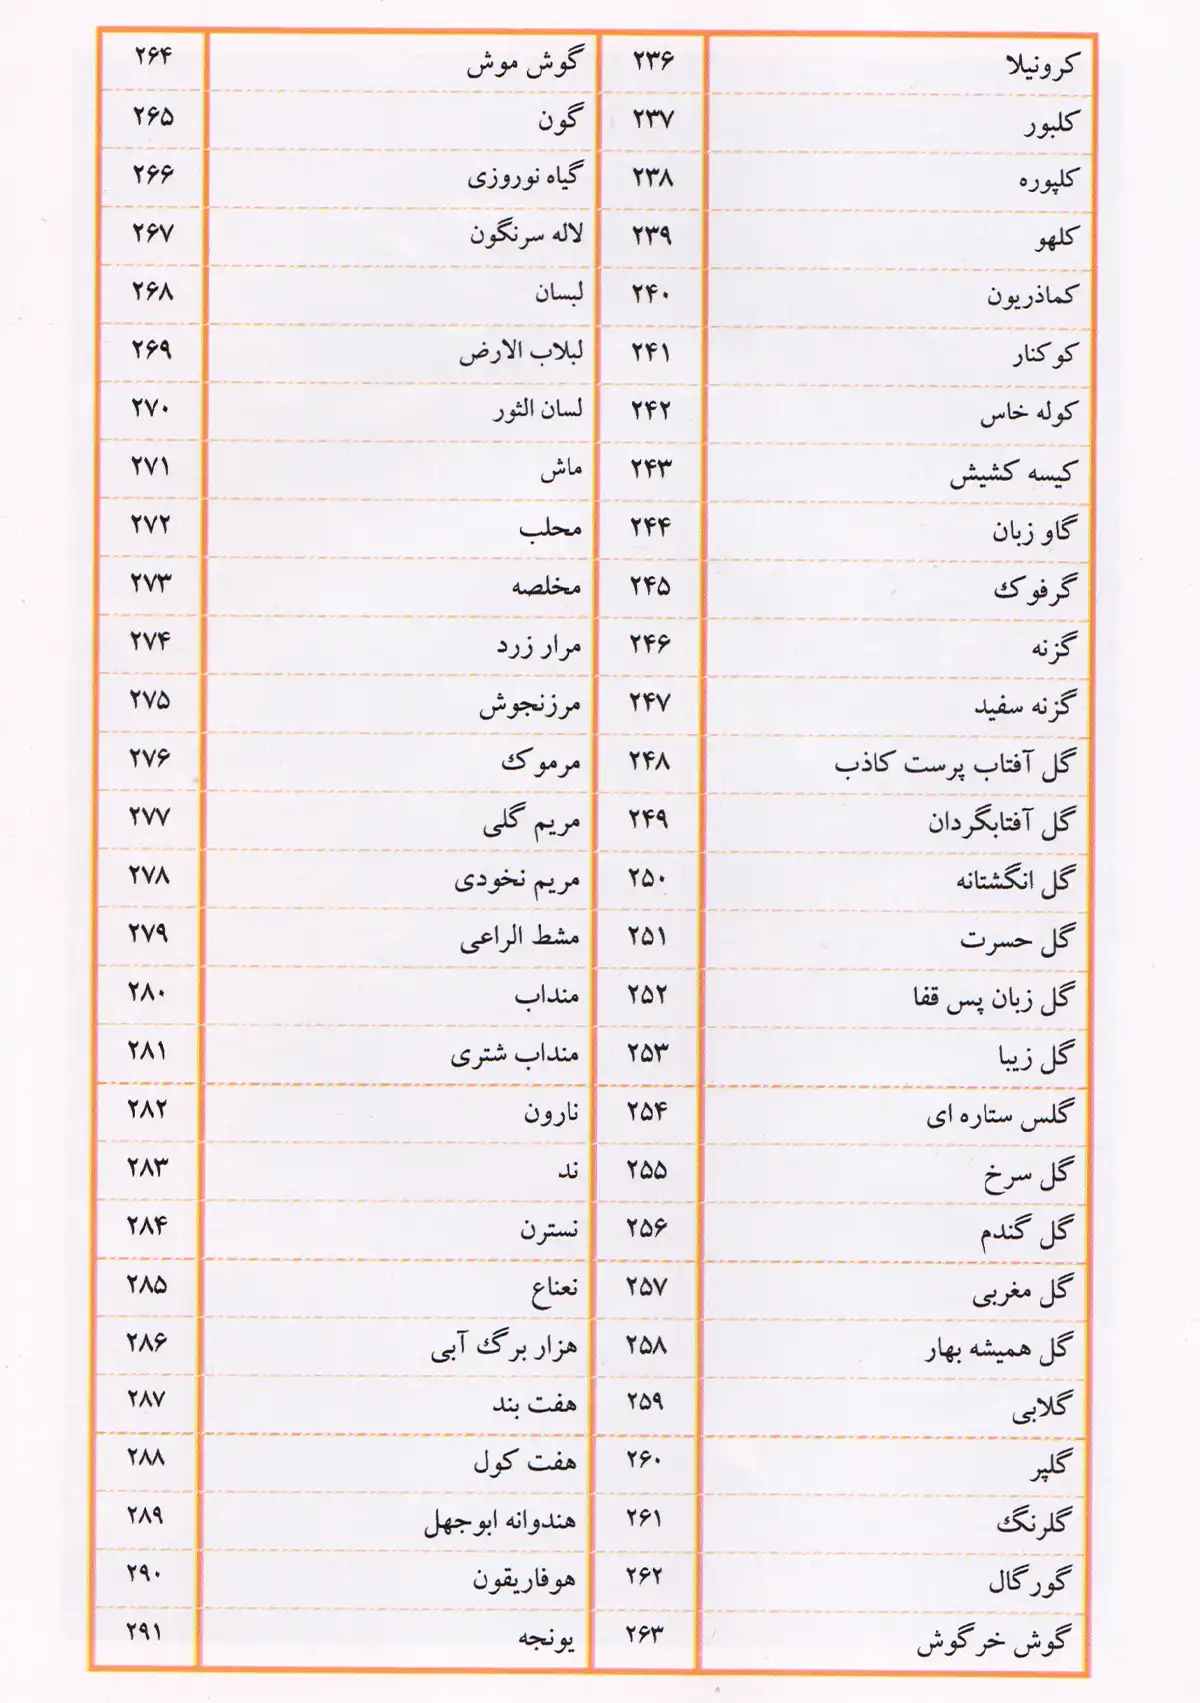 کرونیلا ۲۳۶
کلبور ۲۳۷
کلپوره ۲۳۸
کلهو ۲۳۹
کماذریون ۲۴۰
کوکنار ۲۴۱
کوله خاس ۲۴۲
کیسه کشیش ۲۴۳
گاو زبان ۲۴۴
گرفوک ۲۴۵
گزنه ۲۴۶
گزنه سفید ۲۴۷
گل آفتاب پرست کاذب ۲۴۸
گل آفتابگردان ۲۴۹
گل انگشتانه ۲۵۰
گل حسرت ۲۵۱
گل زبان پس قفا ۲۵۲
گل زیبا ۲۵۳
گلس ستاره ای ۲۵۴
گل سرخ ۲۵۵
گل گندم ۲۵۶
گل مغربی ۲۵۷
گل همیشه بهار ۲۵۸
گلابی ۲۵۹
گلپر ۲۶۰
گلرنگ ۲۶۱
گورگال ۲۶۲
گوش خرگوش ۲۶۳
گوش موش ۲۶۴
گون ۲۶۵
گیاه نوروزی ۲۶۶
لاله سرنگون ۲۶۷
لبسان ۲۶۸
لبلاب الارض ۲۶۹
لسان الثور ۲۷۰
ماش ۲۷۱
محلب ۲۷۲
مخلصه ۲۷۳
مرار زرد ۲۷۴
مرزنجوش ۲۷۵
مرموک ۲۷۶
مریم گلی ۲۷۷
مریم نخودی ۲۷۸
مشط الراعی ۲۷۹
منداب ۲۸۰
منداب شتری ۲۸۱
نارون ۲۸۲
ند ۲۸۳
نسترن ۲۸۴
نعناع ۲۸۵
هزار برگ آبی ۲۸۶
هفت بند ۲۸۷
هفت کول ۲۸۸
هندوانه ابوجهل ۲۸۹
هوفاریقون ۲۹۰
یونجه ۲۹۱